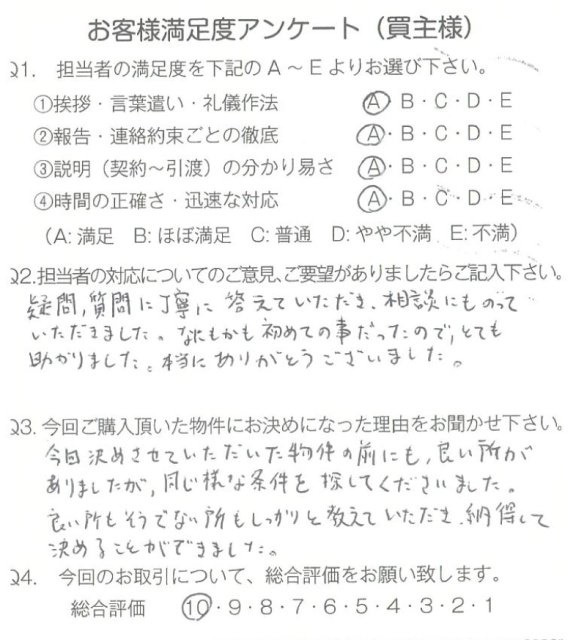 お客様満足度アンケート（買主様）
Q1. 担当者の満足度を下記のA～Eよりお選び下さい。
①挨拶・言葉遣い・礼儀作法 A・B・C・D・E
②報告・連絡約束ごとの徹底 A・B・C・D・E
③説明（契約～引渡）の分かり易さ A・B・C・D・E
④時間の正確さ・迅速な対応 A・B・C・D・E
（A: 満足 B: ほぼ満足 C: 普通 D: やや不満 E: 不満）
Q2.担当者の対応についてのご意見、ご要望がありましたらご記入下さい。
疑問,質問に丁寧に答えていただき、相談にものって
いただきました。なにもかも初めての事だったので,とても
助かりました。本当にありがとうございました。
Q3. 今回ご購入頂いた物件にお決めになった理由をお聞かせ下さい。
今回決めさせていただいた物件の前にも,良い所が
ありましたが,同じ様な条件を探してくださいました。
良い所もそうでない所もしっかりと教えていただき、納得して
決めることができました。
Q4. 今回のお取引について、総合評価をお願い致します。
総合評価 10・9・8・7・6・5・4・3・2・1